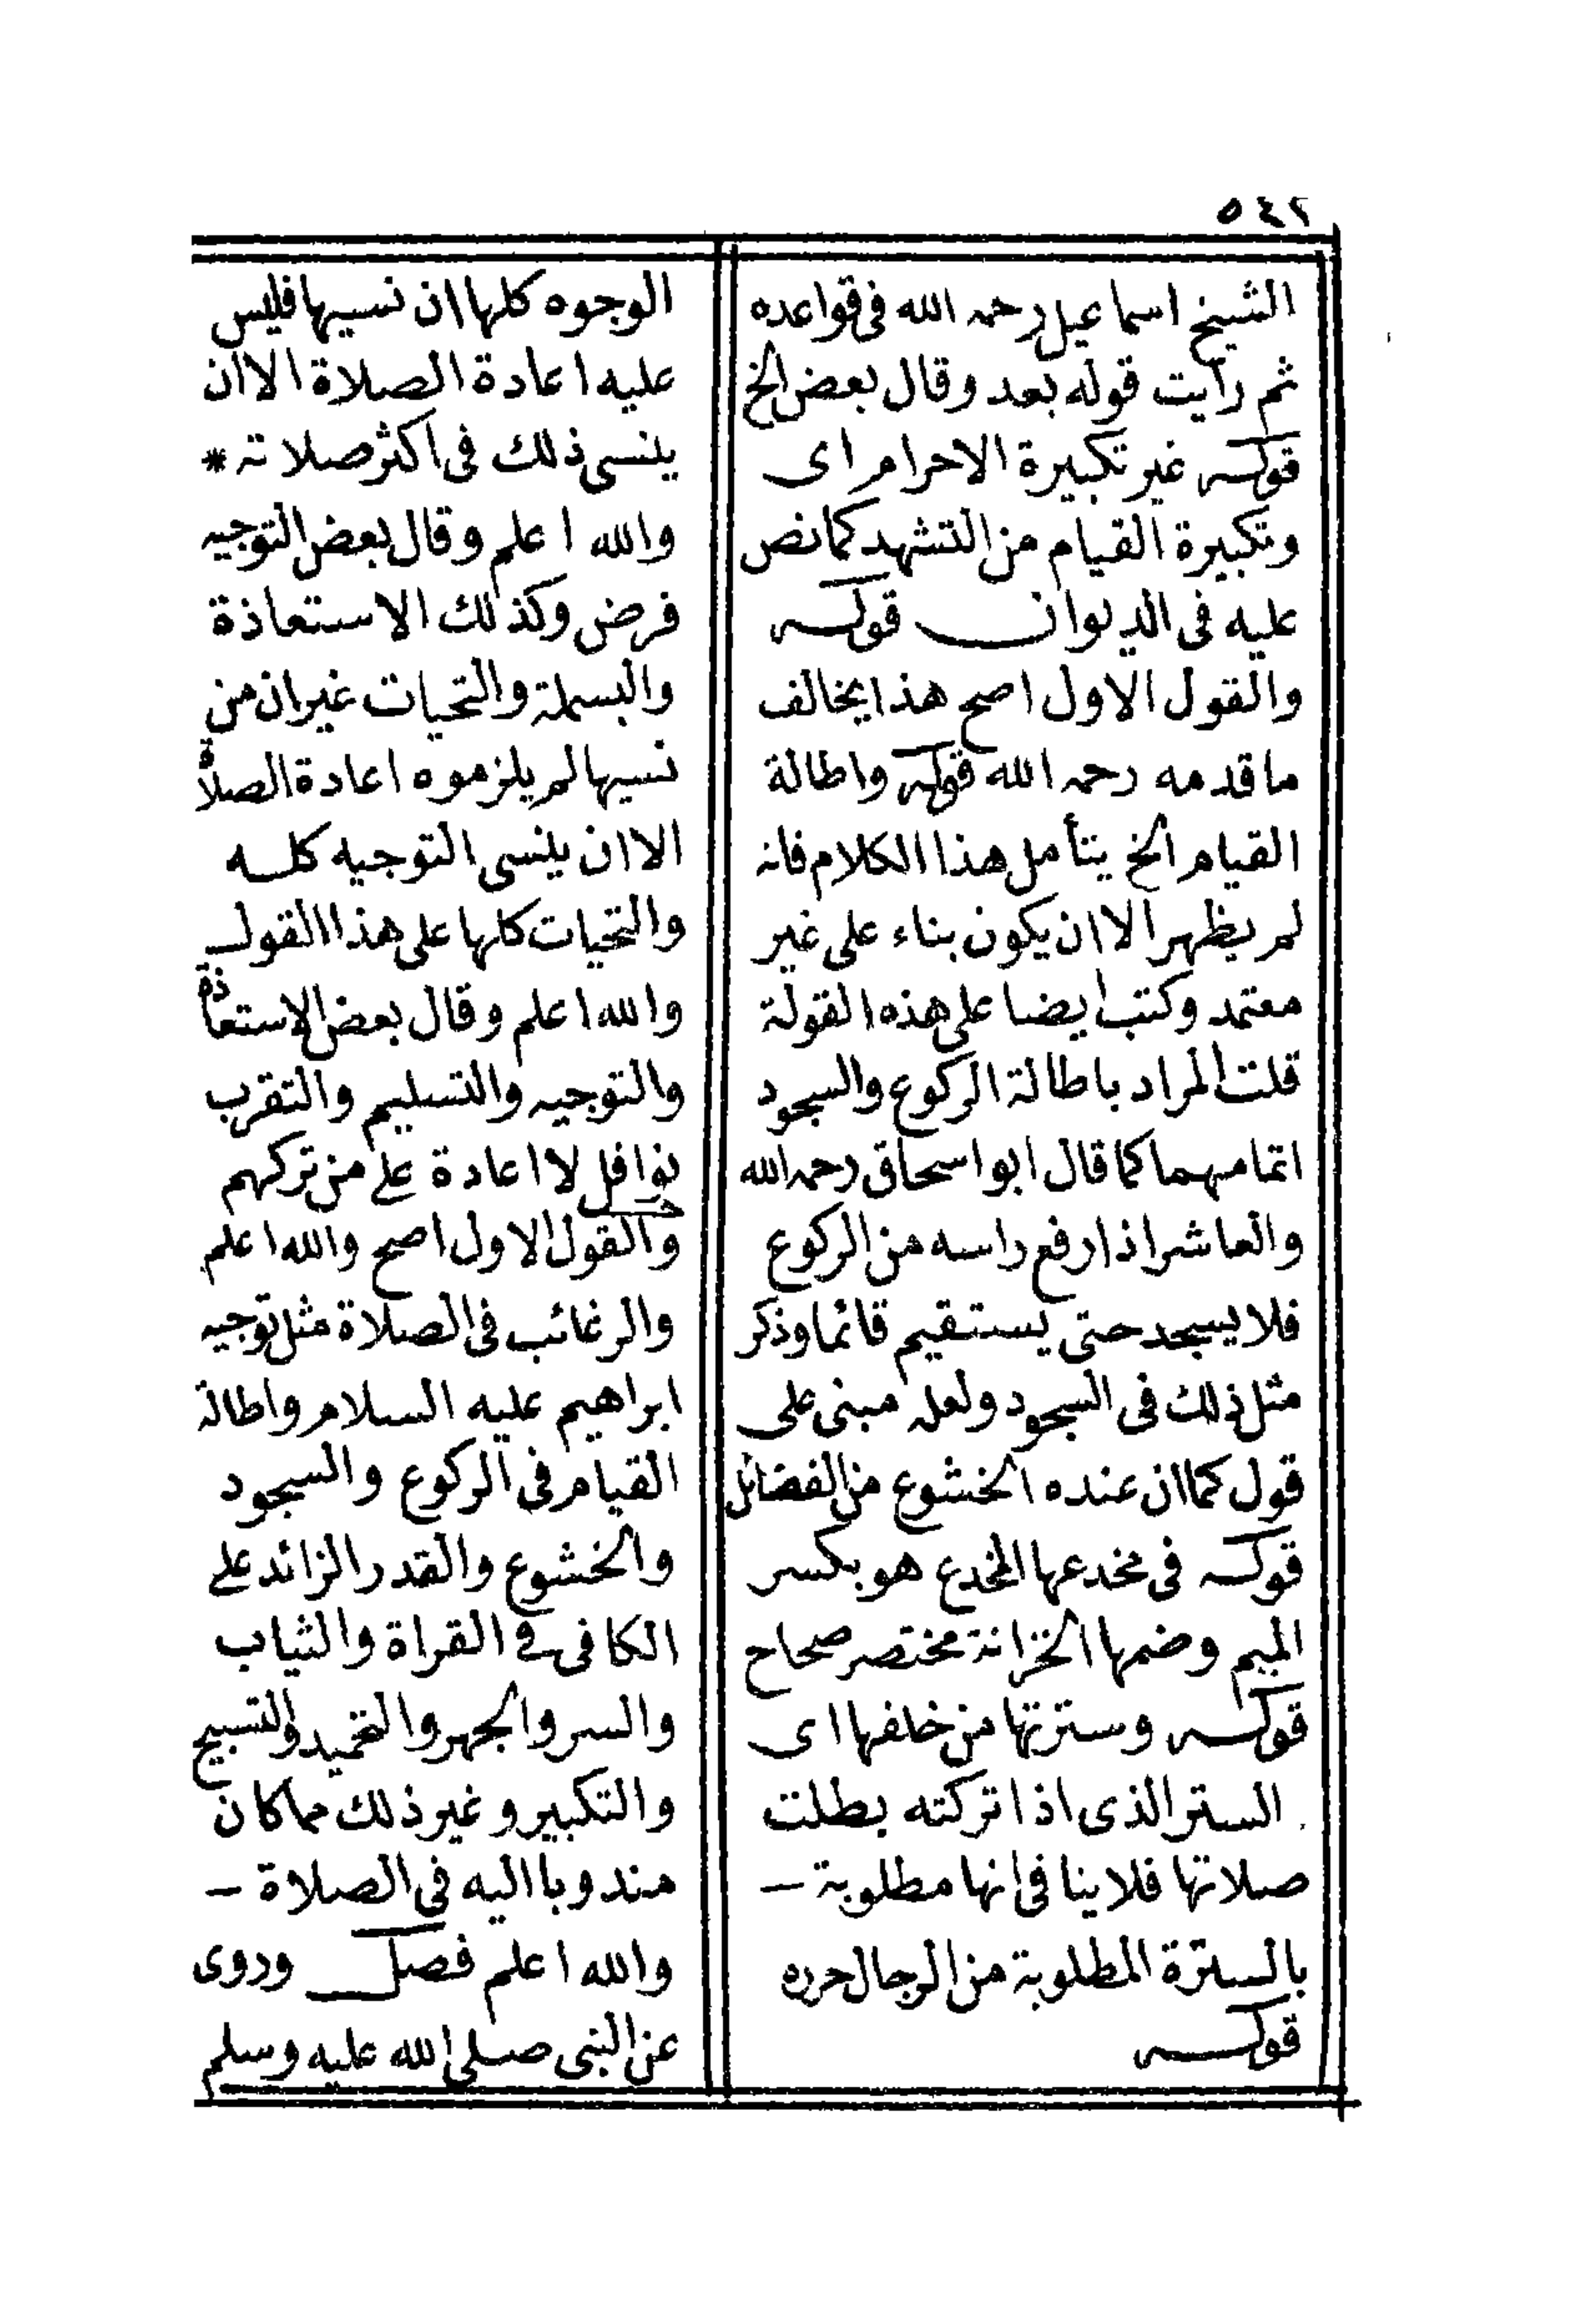 ٥٤٢
الشيخ اسماعيل رحمه الله فى قواعده
ثم رايت قوله بعد وقال بعض الخ
قوله غير تكبيرة الاحرام اى
وتكبيرة القيام من التشهد كما نص
عليه فى الديوان قوله
والقول الاول اصح هذا يخالف
ما قدمه رحمه الله قوله واطالة
القيام الخ يتأمل هذا الكلام فانه
لم يظهر الا ان يكون بناء على غير
معتمد وكتب ايضا على هذه القولة
قلت المراد باطالة الركوع والسجود
اتمامهما كما قال ابو اسحاق رحمه الله
والعاشر اذا رفع راسه من الركوع
فلا يسجد حتى يستقيم قائما وذكر
مثل ذلك فى السجود ولعله مبنى على
قول كما ان عنده الخشوع من الفضائل
قوله فى مخدعها المخدع هو بكسر
الميم وضمها الخزانة مختصر صحاح
قوله وسترتها من خلفها اى
الستر الذى اذا تركته بطلت
صلاتها فلا ينا فى انها مطلوبة –
بالسترة المطلوبة من الرجال حرره
قوله
الوجوه كلها ان نسيها فليس
عليه اعادة الصلاة الا ان
ينسى ذلك فى اكثر صلاته *
والله اعلم وقال بعض التوجيه
فرض وكذلك الاستعاذة
والبسملة والتحيات غير ان من
نسيها لم يلزموه اعادة الصلاة
الا ان ينسى التوجيه كله
والتحيات كلها على هذا القول
والله اعلم وقال بعض الاستعاذة
والتوجيه والتسليم والتقرب
نوافل لا اعادة على من تركهم
والقول الاول اصح والله اعلم
والرغائب فى الصلاة مثل توجيه
ابراهيم عليه السلام واطالة
القيام فى الركوع والسجود
والخشوع والقدر الزائد على
الكافى فى القراة والثياب
والسر والجهر والتحميد والتسبيح
والتكبير وغير ذلك مما كان
مندوبا اليه فى الصلاة –
والله اعلم فصل وروى
عن النبى صلى الله عليه وسلم